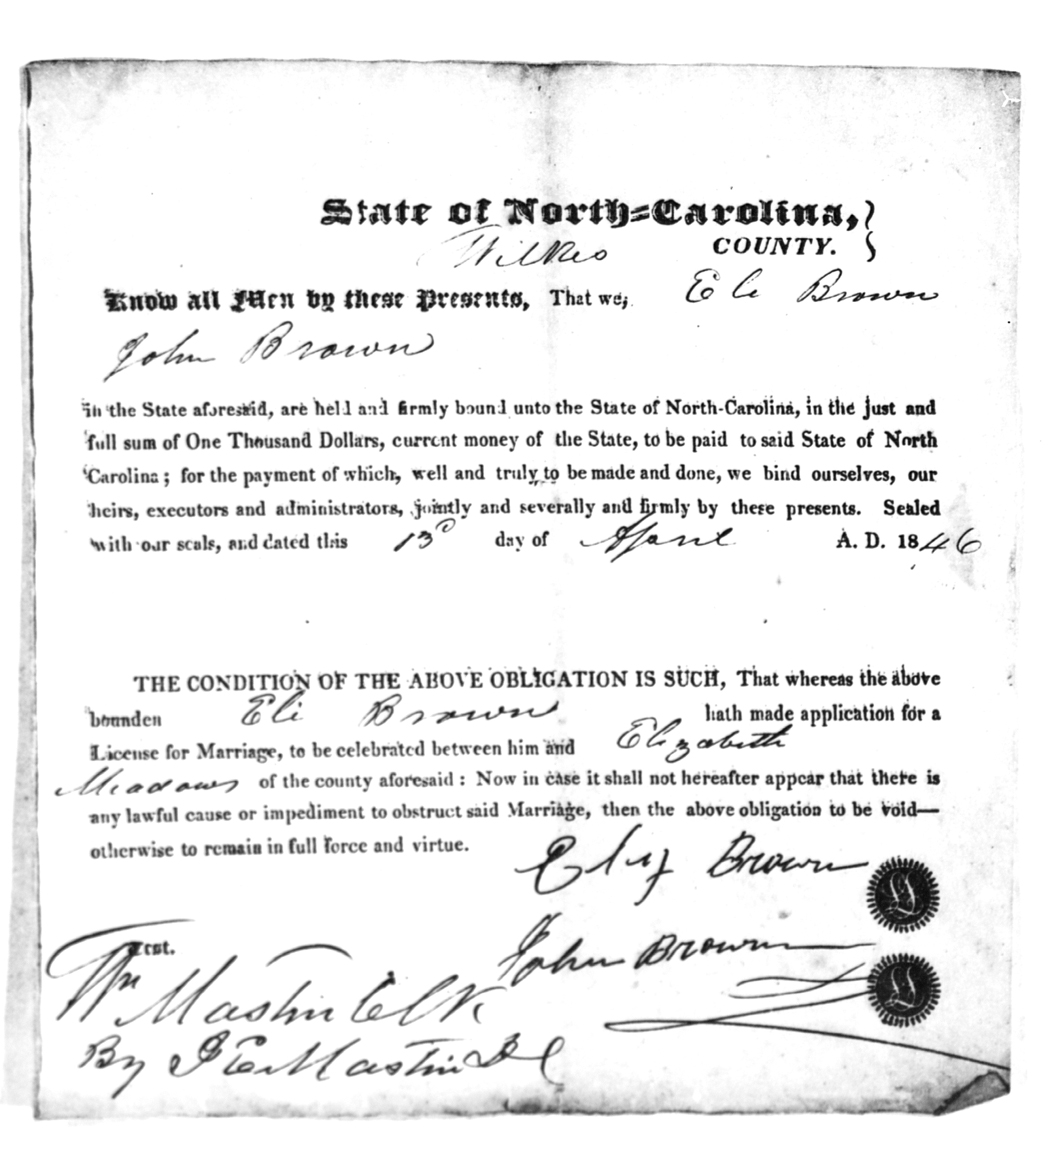 State of North=Carolina,
Wilkes COUNTY.
Know all Men by these Presents, That we, Eli Brown
John Brown
in the State aforesaid, are held and firmly bound unto the State of North-Carolina, in the just and
full sum of One Thousand Dollars, current money of the State, to be paid to said State of North
Carolina; for the payment of which, well and truly to be made and done, we bind ourselves, our
heirs, executors and administrators, jointly and severally and firmly by these presents. Sealed
with our seals, and dated this 13 day of April A. D. 1846
THE CONDITION OF THE ABOVE OBLIGATION IS SUCH, That whereas the above
bounden Eli Brown hath made application for a
License for Marriage, to be celebrated between him and Elizabeth
Meadows of the county aforesaid: Now in case it shall not hereafter appear that there is
any lawful cause or impediment to obstruct said Marriage, then the above obligation to be void—
otherwise to remain in full force and virtue.
Brown
Test.
John Brown
Wm Mastin Clk
By Mastin